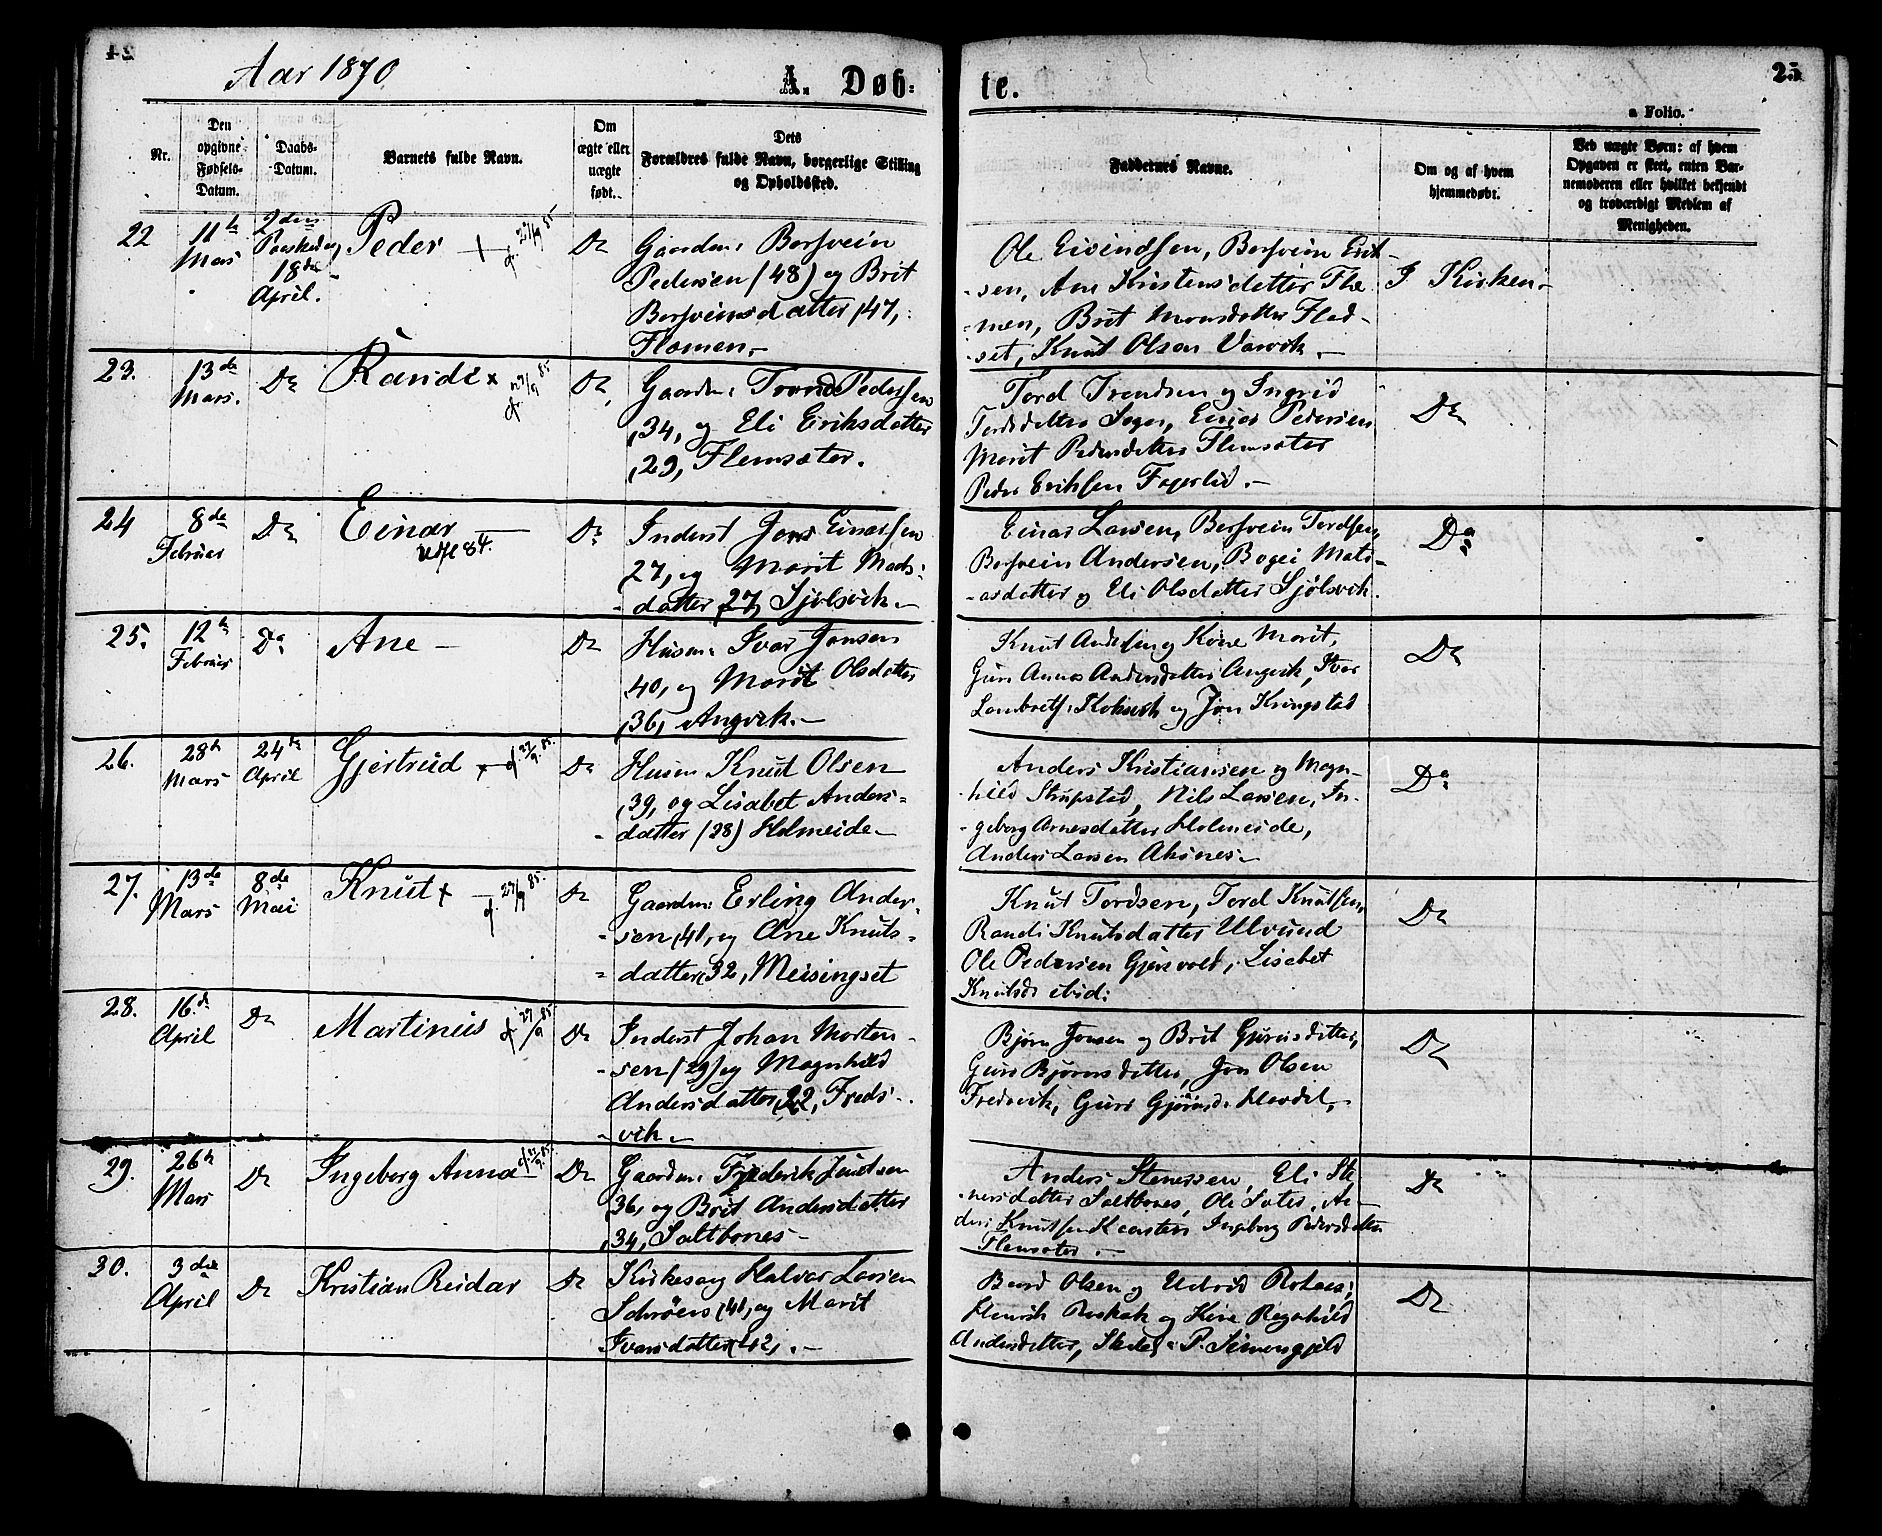 24
Aar 1870.
A. Døb=
te.
25
a Folio.
Nr.
Den
opgivne
Fødsels-
Datum.
Daabs-
Datum.
Barnets fulde Navn.
Om
ægte eller
uægte
født.
Dets
Forældres fulde Navn, borgerlige Stilling
og Opholdssted.
Faddernes Navne.
Om og af hvem
hjemmedøbt.
Ved uægte Børn: af hvem
Opgaven er skeet, enten Bar-
nemoderen eller hvilket bekjendt
og troværdigt Medlem af
Menigheden.
22
11te
Mars
2den
Paaskedag
18de
April.
Peder
27/9 85
Do
Gaardm: Bersvein
Pedersen (48) og Brit
Bersveinsdatter (47,
Flemen,-
Ole Eivindsen, Bersvein Erik-
-sen, Ane Kristensdatter Fle-
-men, Brit Monsdatter Flad-
-set, Knut Olsen Varvik.-
I Kirken.-
23.
13de
Mars.
Do
Randi x
27/9 85
Do
Gaardm: Trond Pedersen
,34, og Eli Eriksdatter
,29, Flemsæter.
Tord Trondsen og Ingrid
Tordsdatter Einar Pedersen
Marit Pedersdatter Flemsæter
Peder Eriksen Fagerlid.-
Do
24
8de
Februar
Do
Einar
84.
Do
Inderst Jens Einarsen
27, og Marit Mads-
-datter ,27, Sjølsvik.-
Einar Larsen, Bersvein Tordsen,
Bersvein Andersen, Mats-
datter og Eli Olsdatter Sjølsvik.
Do
25.
12te
Februar
Do
Ane -
Do
Husm: Ivar Jonsen
40, og Marit Olsdatter
,36, Angvik.-
Knut og Kone Marit,
Guri Andersdatter Angvik, Ivar
og Jon Kringstad
Do
26.
28de
Mars
24de
April
Gjertrud x
27/9 85.
Do
Husm Knut Olsen
,39, og Lisabet Anders-
-datter (28) Holmeide-
Anders Kristiansen og Magn-
-hild Nils Larsen, In-
-geborg Arnesdatter Holmeide,
Anders Larsen Aksnes-
Do
27.
13de
Mars
8de
Mai
Knut x
27/9 85.
Do
Gaardm: Erling Ander-
-sen ,41, og Ane Knuts-
-datter ,32, Meisingset
Knut Tordsen, Tord Knutsen,
Randi Knutsdatter Ulvund
Ole Pedersen Gjersvold, Lisabet
Knutsd: ibid:
Do
28.
16de
April
Do
Martinus
27/9 85
Do
Inderst Johan Morten-
-sen (29) og Magnhild
Andersdatter ,22, Freds-
-vik.-
Bjørn Jonsen og Brit Gjørensdatter,
Guri Bjørnsdatter, Jon Olsen
Fredsvik, Guri Gjørensd:
Do
29.
26te
Mars
Do
Ingeborg Anna
27/9 85
Do
Gaardm: Frederik Knutsen
36, og Brit Andersdatter
,34, Saltbones-
Anders Stenersen, Eli Ste-
-nersdatter Saltbones, Ole Sæter, An-
ders Knutsen Ingeborg Pedersdatter
Flemsæter.-
Do
30.
3die
April
Do
Kristian Reidar
Do
Kirkesang Halvar Larsen
Schrøers ,41, og Marit
Ivarsdatter ,42, .-
Baard Olsen og
og Kone Ragnhild
Andersdatter,
Do